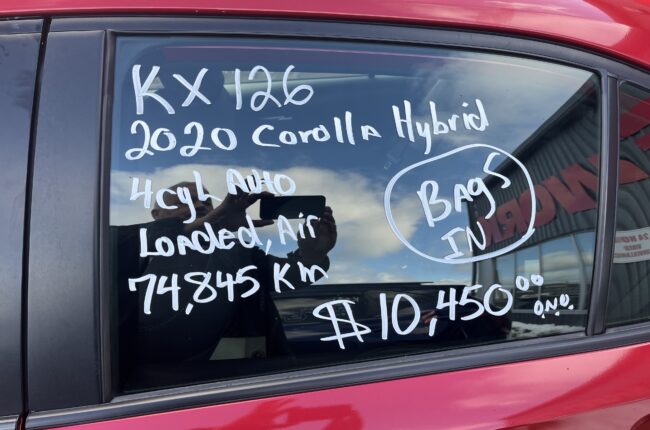 KX 126
2020 Corolla Hybrid
4cyl Auto
Loaded, Air
74,845 Km
BAgs
IN
$10,450⁰⁰
O.N.O.